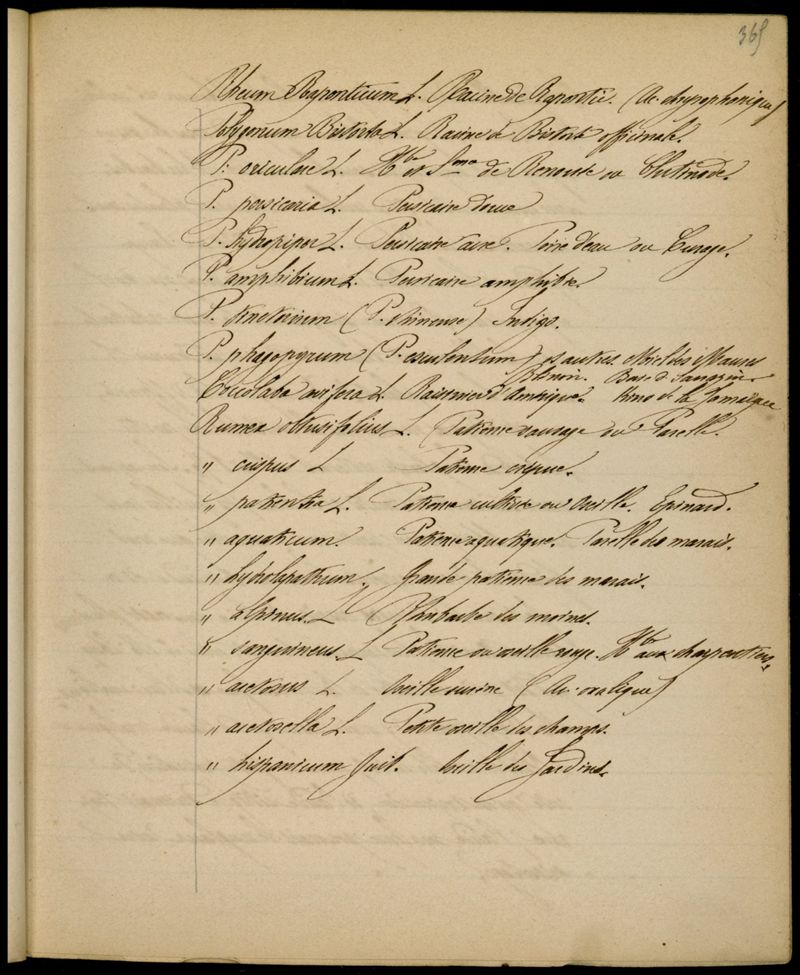 365
Rheum Rhaponticum L. Racine de Rapontic. (Ac. chrysophanique)
Polygonum Bistorta L. Racine de Bistorte officinale.
P. aviculare L. Hbe et Smce de Renouée ou Centinode.
P. persicaria L. Persicaire douce
P. hydropiper L. Persicaire âcre. Poivre d'eau ou Curage.
P. amphibium L. Persicaire amphibie.
P. tinctorium (P. chinense) Indigo.
P. phagopyrum (P. esculentum) et autres.
Coccoloba uvifera L. Raisinier d'Amérique. Kino de la Jamaïque
Rumex obtusifolius L. (Patience sauvage ou Parelle.
" crispus L Patience crépue.
" patientia L. Patience cultivée ou Oseille. Epinard.
" aquaticum. Patience aquatique. Parelle des marais.
" hydrolapathum. Grande patience des marais.
" alpinus. L Rhubarbe des moines.
" sanguineus. L Patience ou oseille rouge. Hbe aux charpentiers.
" acetosus L. Oseille surine (Ac. oxalique)
" acetosella L. Petite oseille des champs.
" hispanicum Oseille des Jardins.